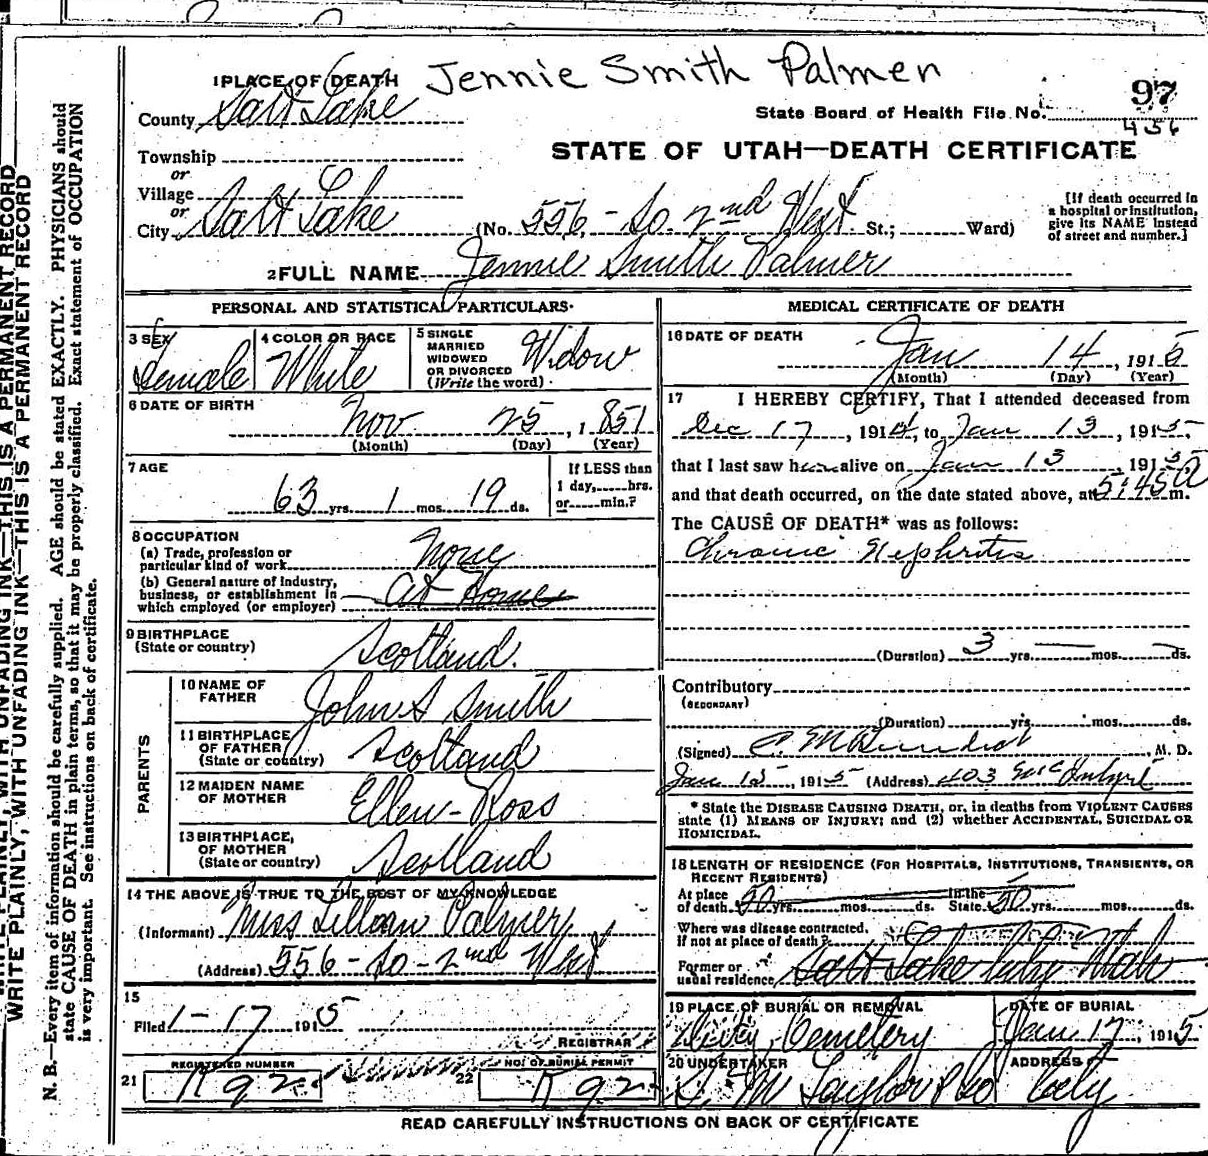 Jennie Smith Palmer
1 PLACE OF DEATH
County Salt Lake
State Board of Health File No. 97
456
Township
or
Village
or
City Salt Lake
STATE OF UTAH—DEATH CERTIFICATE
(No. 556 - So. 2nd West St.; Ward)
[If death occurred in
a hospital or institution,
give its NAME instead
of street and number.]
2 FULL NAME Jennie Smith Palmer
PERSONAL AND STATISTICAL PARTICULARS
3 SEX
Female
4 COLOR OR RACE
White
5 SINGLE
MARRIED
WIDOWED
OR DIVORCED
(Write the word)
Widow
6 DATE OF BIRTH
Nov 25, 1851
(Month) (Day) (Year)
7 AGE
63 yrs. 1 mos. 19 ds.
If LESS than
1 day, hrs.
or min.?
8 OCCUPATION
(a) Trade, profession or
particular kind of work None
(b) General nature of industry,
business, or establishment in
which employed (or employer) At Home
9 BIRTHPLACE
(State or country) Scotland.
PARENTS
10 NAME OF
FATHER John S Smith
11 BIRTHPLACE
OF FATHER
(State or country) Scotland
12 MAIDEN NAME
OF MOTHER Ellen Ross
13 BIRTHPLACE,
OF MOTHER
(State or country) Scotland
14 THE ABOVE IS TRUE TO THE BEST OF MY KNOWLEDGE
(Informant) Miss Lillian Palmer
(Address) 556 - So - 2nd West
15
Filed 1-17 1915
REGISTRAR
REGISTERED NUMBER
21 K92
NO. OF BURIAL PERMIT
22 K92
MEDICAL CERTIFICATE OF DEATH
16 DATE OF DEATH
Jan 14, 1915
(Month) (Day) (Year)
17 I HEREBY CERTIFY, That I attended deceased from
Dec 17, 1914, to Jan 13, 1915
that I last saw her alive on Jan 13, 1915
and that death occurred, on the date stated above, at 5:45 A m.
The CAUSE OF DEATH* was as follows:
Chronic Nephritis
(Duration) 3 yrs. mos. ds.
Contributory
(SECONDARY)
(Duration) yrs. mos. ds.
(Signed) M. D.
Jan 15, 1915 (Address) 403
* State the DISEASE CAUSING DEATH, or, in deaths from VIOLENT CAUSES
state (1) MEANS OF INJURY; and (2) whether ACCIDENTAL, SUICIDAL OR
HOMICIDAL.
18 LENGTH OF RESIDENCE (FOR HOSPITALS, INSTITUTIONS, TRANSIENTS, OR
RECENT RESIDENTS)
At place
of death 50 yrs. mos. ds. In the
State 50 yrs. mos. ds.
Where was disease contracted,
if not at place of death?
Former or
usual residence Salt Lake City Utah
19 PLACE OF BURIAL OR REMOVAL
City Cemetery
DATE OF BURIAL
Jan 17, 1915
20 UNDERTAKER
S. M Taylor & Co
ADDRESS
City
READ CAREFULLY INSTRUCTIONS ON BACK OF CERTIFICATE
WRITE PLAINLY, WITH UNFADING INK—THIS IS A PERMANENT RECORD
WRITE PLAINLY, WITH UNFADING INK—THIS IS A PERMANENT RECORD
N. B.—Every item of information should be carefully supplied. AGE should be stated EXACTLY. PHYSICIANS should
state CAUSE OF DEATH in plain terms, so that it may be properly classified. Exact statement of OCCUPATION
is very important. See instructions on back of certificate.